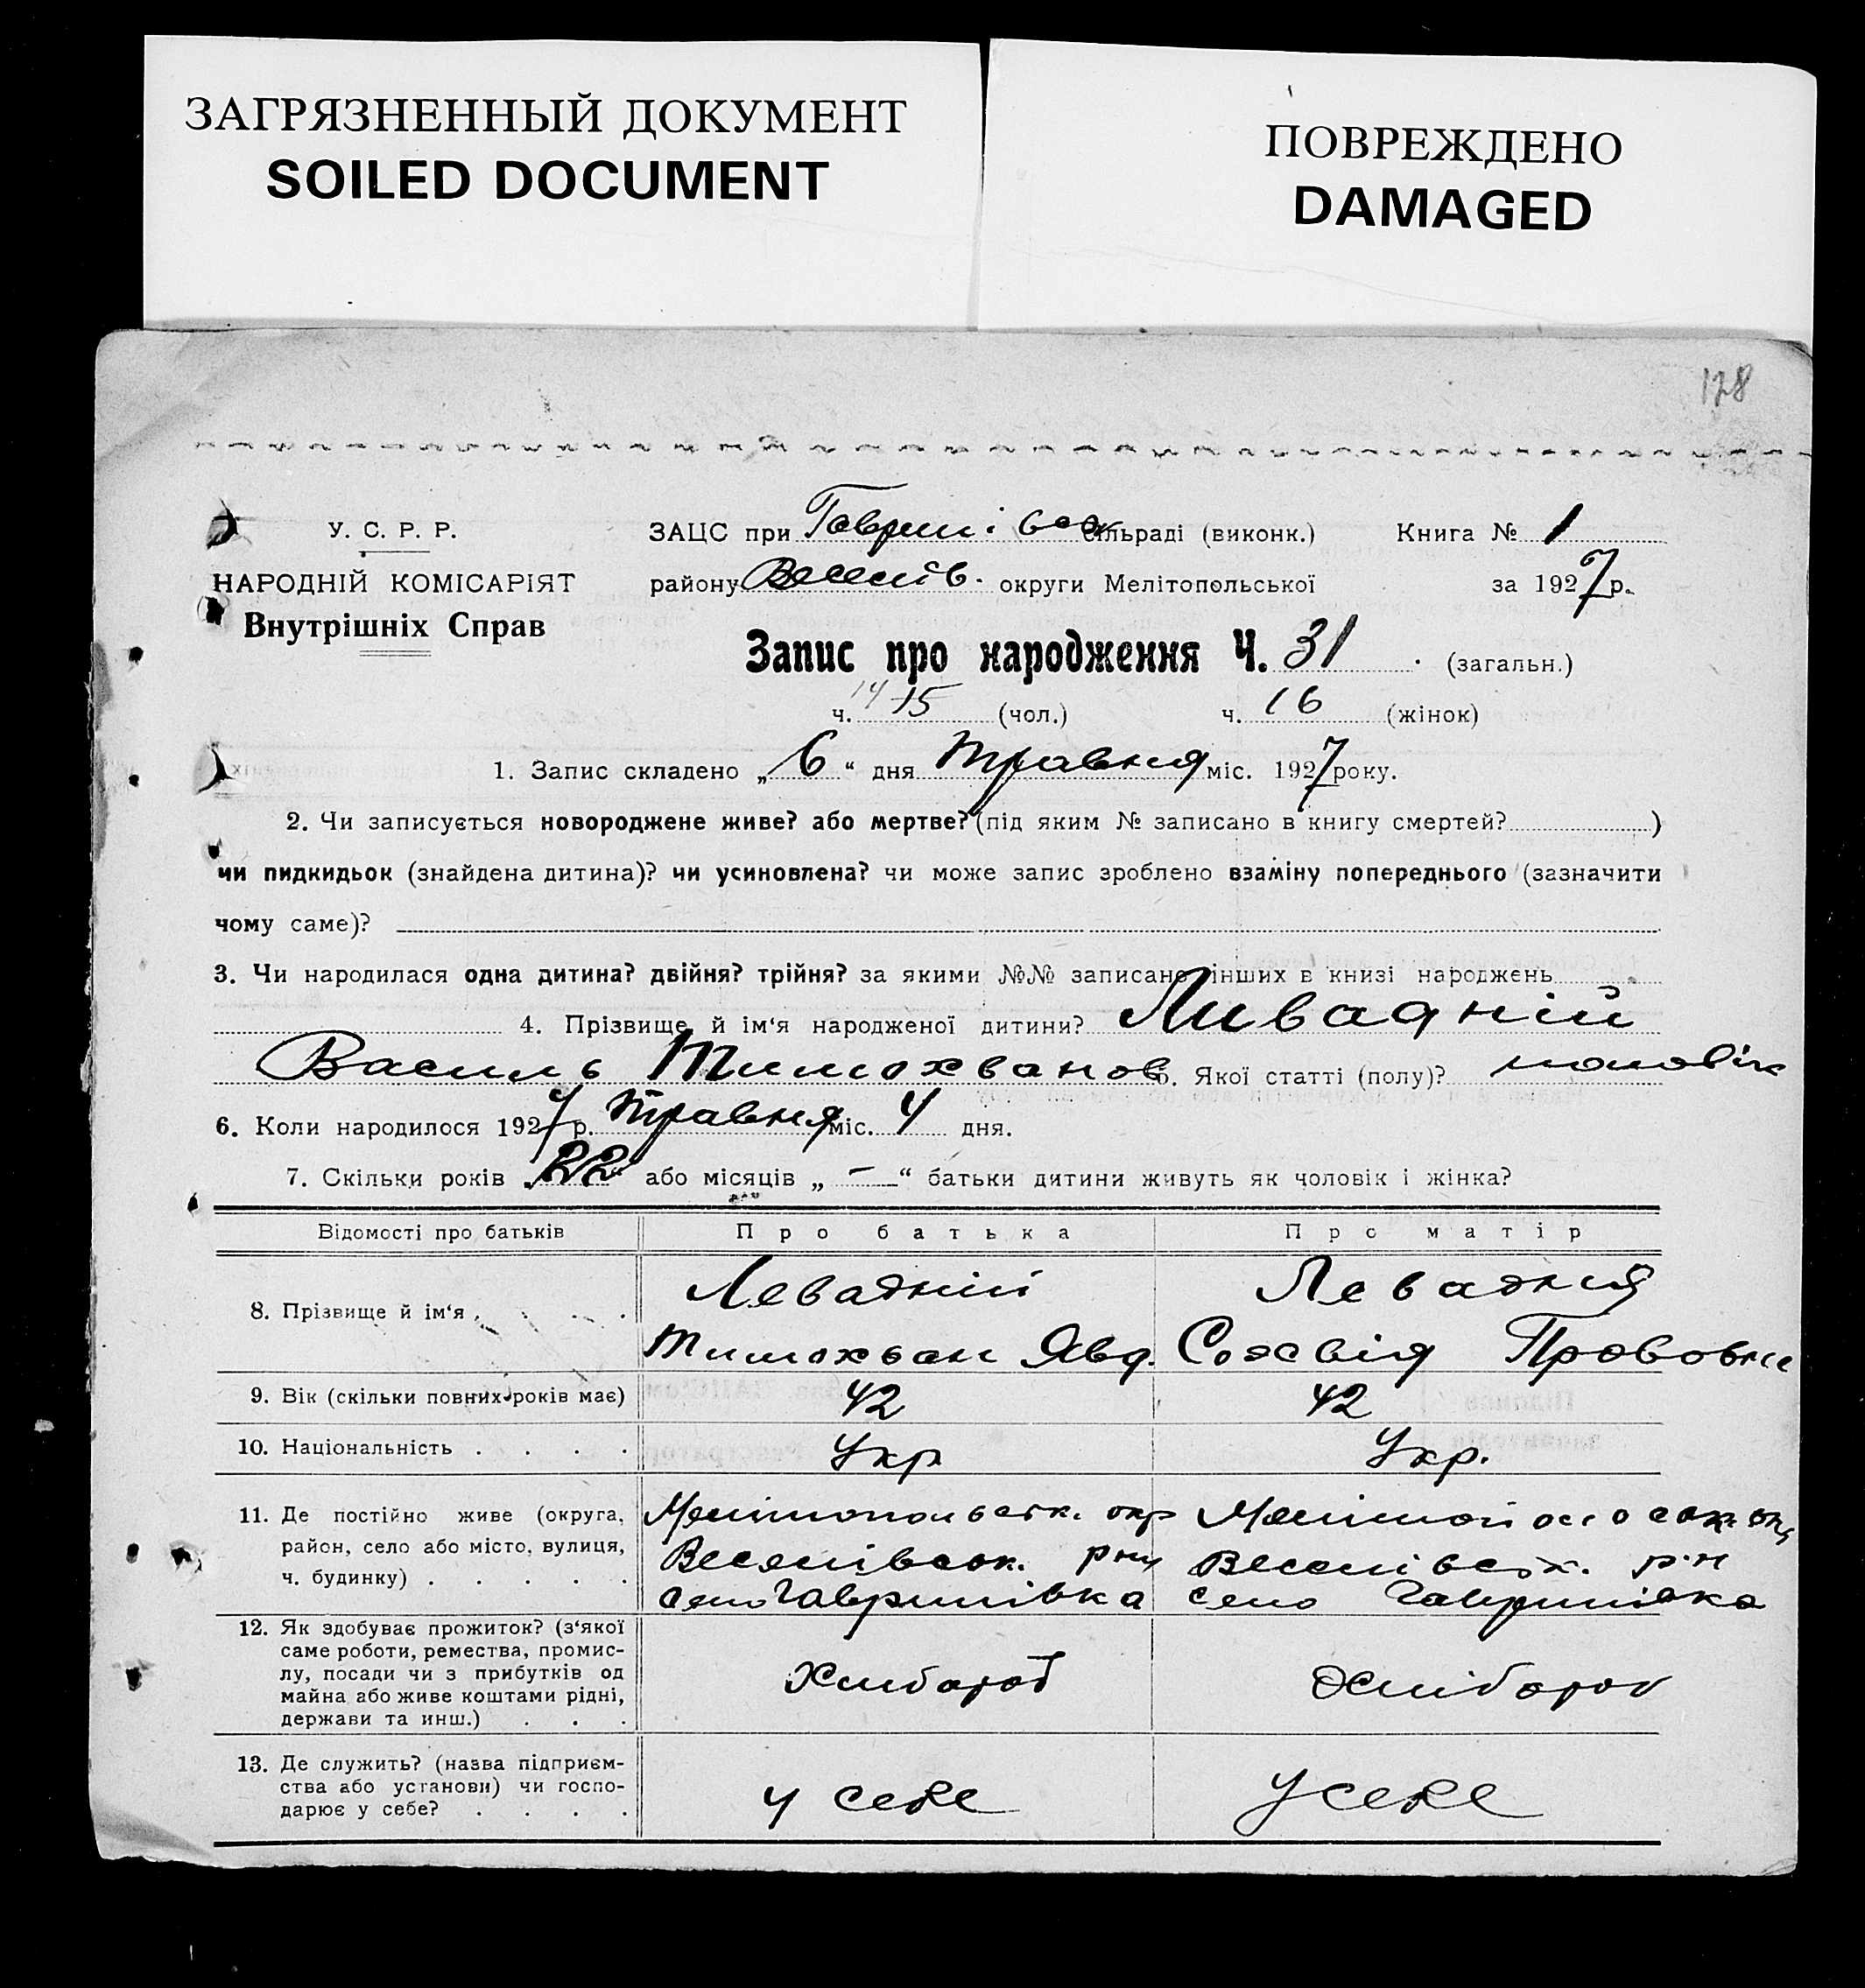 ЗАГРЯЗНЕННЫЙ ДОКУМЕНТ
SOILED DOCUMENT
ПОВРЕЖДЕНО
DAMAGED
128
У. С. Р. Р.
НАРОДНІЙ КОМІСАРІЯТ
Внутрішніх Справ
ЗАЦС при Гаврилівськ сільраді (виконк.) Книга № 1
району Веселів. округи Мелітопольської за 1927 р.
Запис про народження Ч. 31 (загальн.)
ч. 14 15 (чол.) ч. 16 (жінок)
1. Запис складено „ 6 “ дня Травня міс. 1927 року.
2. Чи записується новороджене живе? або мертве? (під яким № записано в книгу смертей? )
чи пидкидьок (знайдена дитина)? чи усиновлена? чи може запис зроблено взаміну попереднього (зазначити
чому саме)?
3. Чи народилася одна дитина? двійня? трійня? за якими №№ записано інших в книзі народжень
4. Прізвище й ім‘я народженої дитини? Ливадній
Василь Тимохванов 5. Якої статті (полу)? чоловік
6. Коли народилося 1927 р. Травня міс. 4 дня.
7. Скільки років „ 22 “ або місяців „ — “ батьки дитини живуть як чоловік і жінка?
Відомості про батьків Про батька Про матір
8. Прізвище й ім‘я
Левадній Левадния
Тимохван Явд. Сохвія Прововна
9. Вік (скільки повних років має) 42 42
10. Національність Укр Укр.
11. Де постійно живе (округа, район, село або місто, вулиця, ч. будинку)
Мелітопольськ. окр Мелітопольськ. окр
Веселівськ. рну Веселівськ. р-н
село Гаврилівка село Гаврилівка
12. Як здобуває прожиток? (з‘якої
саме роботи, ремества, промис-
лу, посади чи з прибутків од
майна або живе коштами рідні,
держави та инш.)
Хлибороб Хлібороб
13. Де служить? (назва підприєм-
ства або установи) чи госпо-
дарює у себе?
у себе у себе